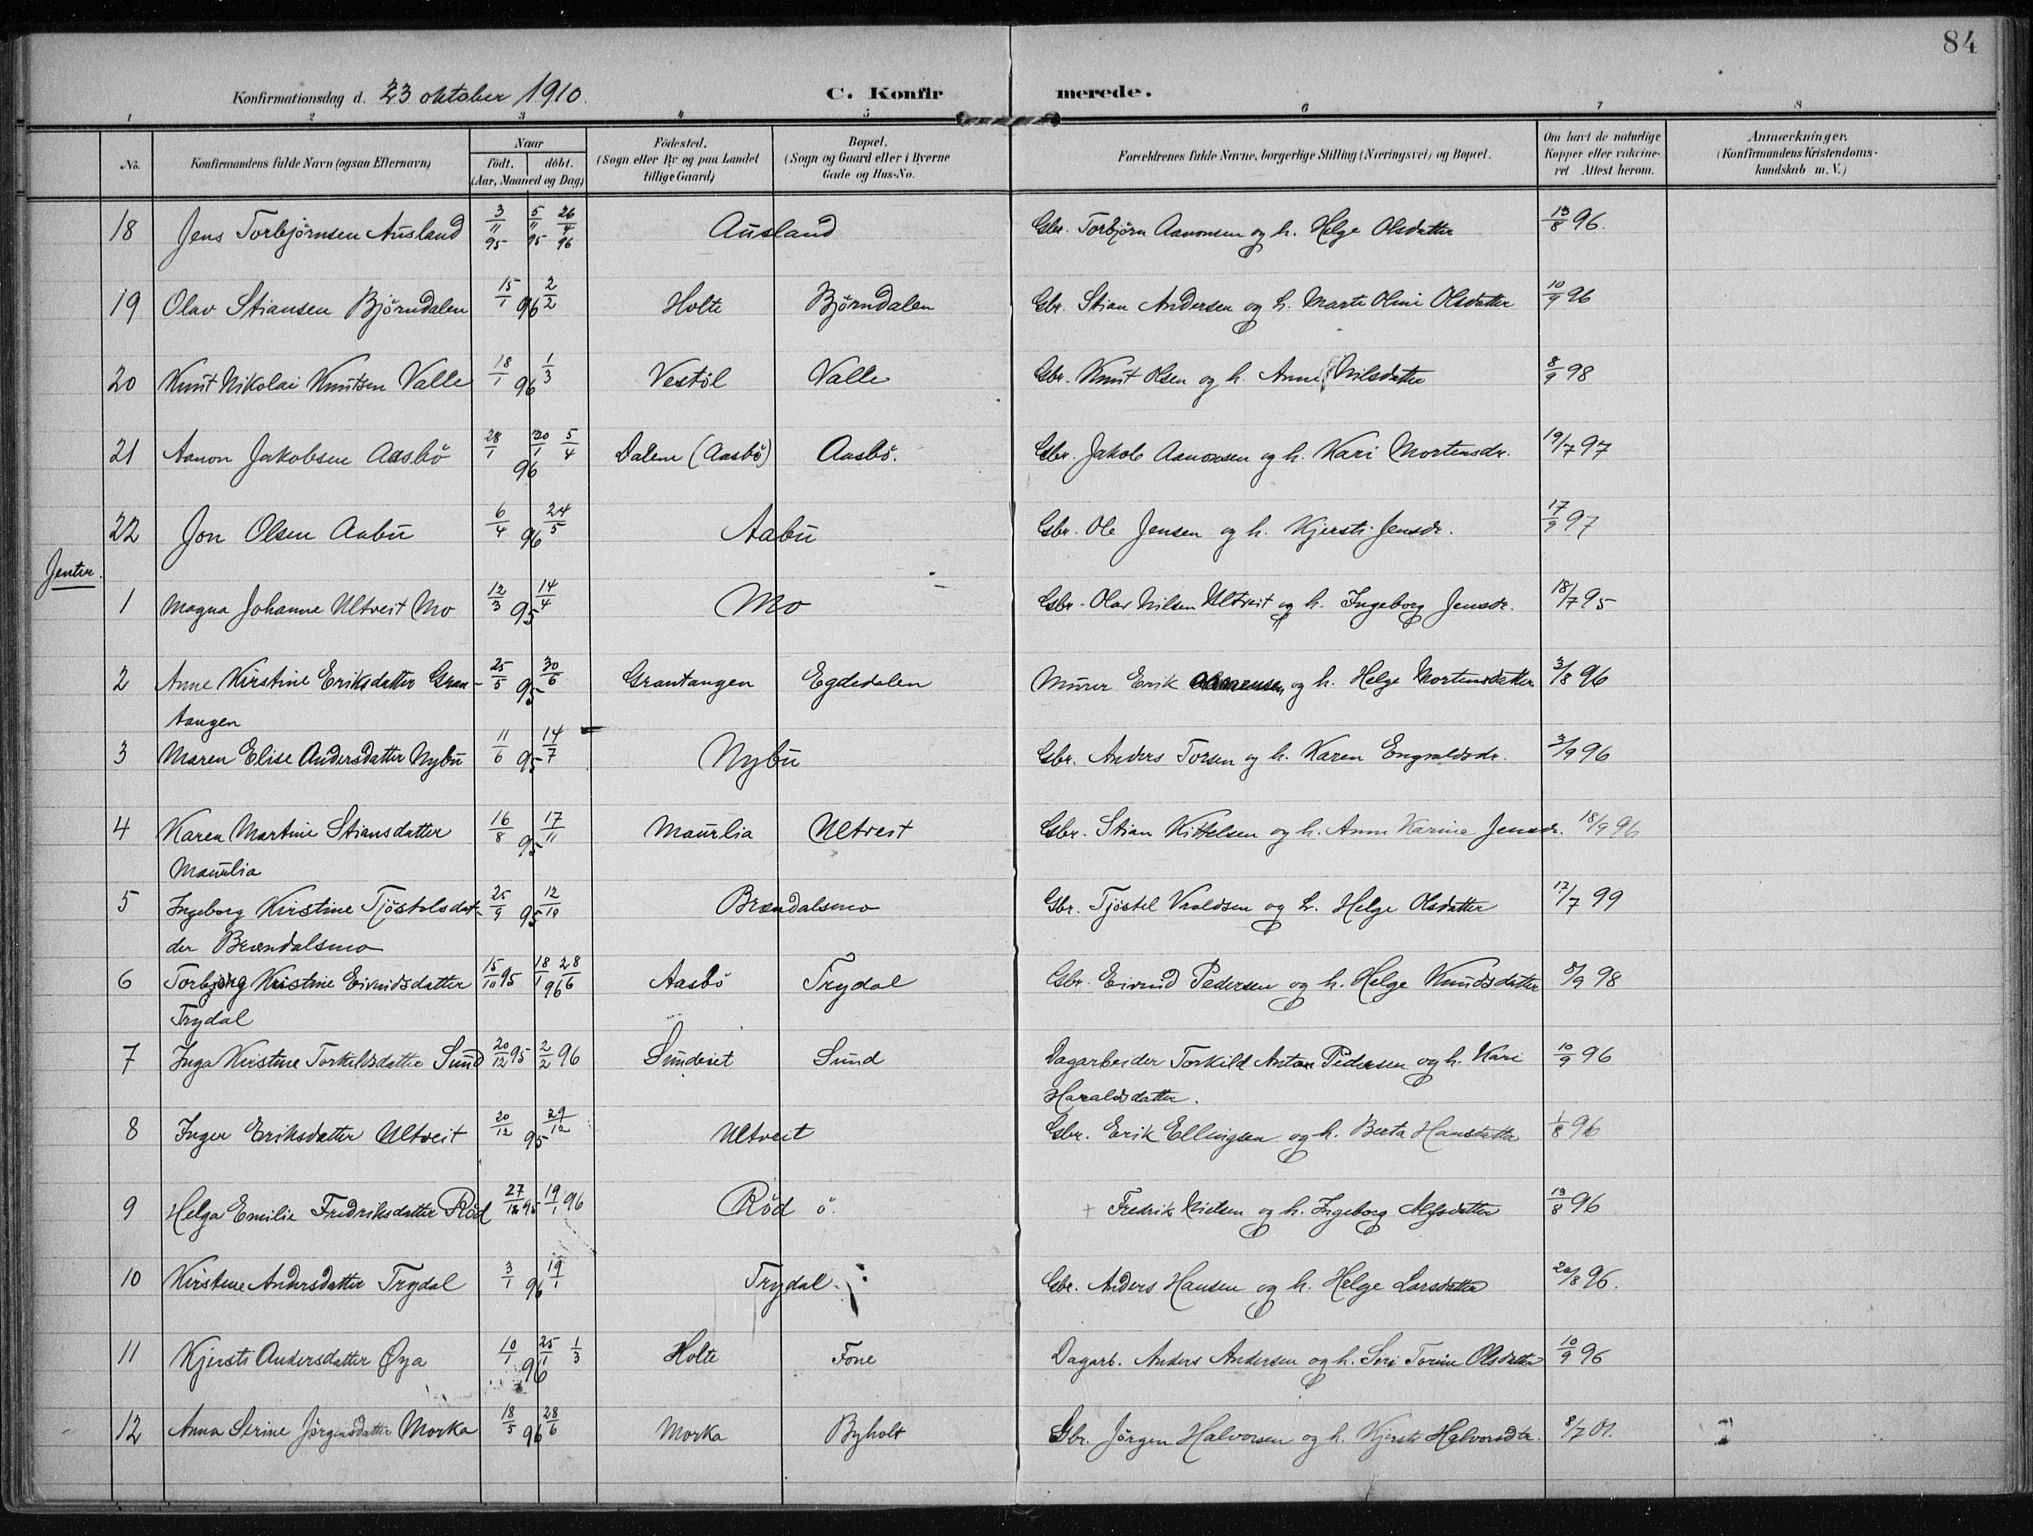 84
Konfirmationsdag d. 23 oktober 1910. C. Konfirmerede.
1 2 3 4 5 6 7 8
No. Konfirmandens fulde Navn (ogsaa Efternavn) Naar født. døbt. (Aar, Maaned og Dag) Fødested. (Sogn eller By og paa Landet tillige Gaard) Bopæl. (Sogn og Gaard eller i Byerne Gade og Hus-No. Forældrenes fulde Navne, borgerlige Stilling (Næringsvei) og Bopæl. Om havt de naturlige Kopper eller vaccineret Attest herom. Anmærkninger. (Konfirmandens Kristendomskundskab m. V.)
18 Jens Torbjørnsen Ausland 3/11 95 5/11 95 26/4 96 Ausland Gbr. Torbjørn Aanonsen og h. Helge Olsdatter 13/8 96.
19 Olav Stiansen Bjørndalen 15/1 96 2/2 Holte Bjørndalen Gbr. Stian Andersen og h. Marte Oline Olsdatter 10/9 96
20 Knut Nikolai Knutsen Valle 18/1 96 1/3 Vestøl Valle Gbr. Knut Olsen og h. Anne Nilsdatter 8/9 98
21 Aanon Jakobsen Aasbø 28/1 96 30/1 5/4 Dalene (Aasbø) Aasbø. Gbr. Jakob Aanonsen og h. Kari Mortensdr. 19/7 97
22 Jon Olsen Aabu 6/4 96 24/5 Aabu Gbr. Ole Jensen og h. Kjersti Jensdr. 17/9 97
Jenter.
1 Magna Johanne Ultveit Mo 12/3 95 14/4 Mo Gbr. Olav Nilsen Ultveit og h. Ingeborg Jensdr. 18/7 95
2 Anne Kirstine Eriksdatter Gran- 25/5 95 30/6 Grantangen Egdedalen Murer Erik og h. Helge Mortensdatter 3/8 96
tangen
3 Maren Elise Andersdatter Nybu 11/6 95 14/7 Nybu Gbr. Anders Torsen og h. Karen Engvaldsdr. 3/9 96
4 Karen Martine Stiansdatter 16/8 95 17/11 Maurlia Ultveit Gbr. Stian Kittelsen og h. Anne Karine Jensdr. 18/9 96
Maurlia
5 Ingeborg Kirstine Tjøstolsdat- 25/9 95 12/10 Brændalsmo Gbr. Tjøstel Vraldsen og h. Helge Olsdatter 17/7 99
der Brændalsmo
6 Torbjørg Kristine Eivindsdatter 15/10 95 18/1 96 28/6 Aasbø Trydal Gbr. Eivind Pedersen og h. Helge Knudsdatter 5/9 98
Trydal
7 Inga Kirstine Torkeldsdatter Sund 20/12 95 2/2 96 Sundeiet Sund Dagarbeider Torkild Anton Pedersen og h. Kari 10/9 96
Haraldsdatter.
8 Inger Eriksdatter Ultveit 20/12 95 29/12 Ultveit Gbr. Erik Ellingsen og h. Berta Hansdatter 1/8 96
9 Helga Emilie Fredriksdatter Rød 27/12 95 19/1 96 Rød ö. + Fredrik Nielsen og h. Ingeborg Alfsdatter 13/8 96
10 Kirstine Andersdatter Trydal 3/1 96 19/1 Trydal. Gbr. Anders Hansen og h. Helge Larsdatter 20/8 96.
11 Kjersti Andersdatter Øya 10/1 96 25/1 1/3 Holte Fone Dagarb. Anders Andersen og h. Siri Torine Olsdatter 10/9 96
12 Anna Serine Jørgensdatter Morka 18/5 96 28/6 Morka Byholt Gbr. Jørgen Halvorsen og h. Kjersti Halvorsdtr. 8/7 01.